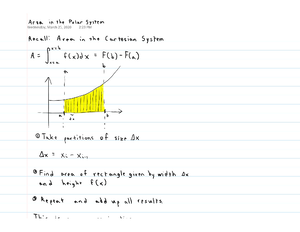 Area in the Polar System
Wednesday, March 11, 2020
Recall: Area in the Cartesian System
A = ∫ f(x)dx = F(b) - F(a)
x=b
x=a
a
b
a
b
① Take partitions of size Δx
Δx = xᵢ - xᵢ₋₁
② Find area of rectangle given by width Δx
and height f(x)
③ Repeat and add up all results